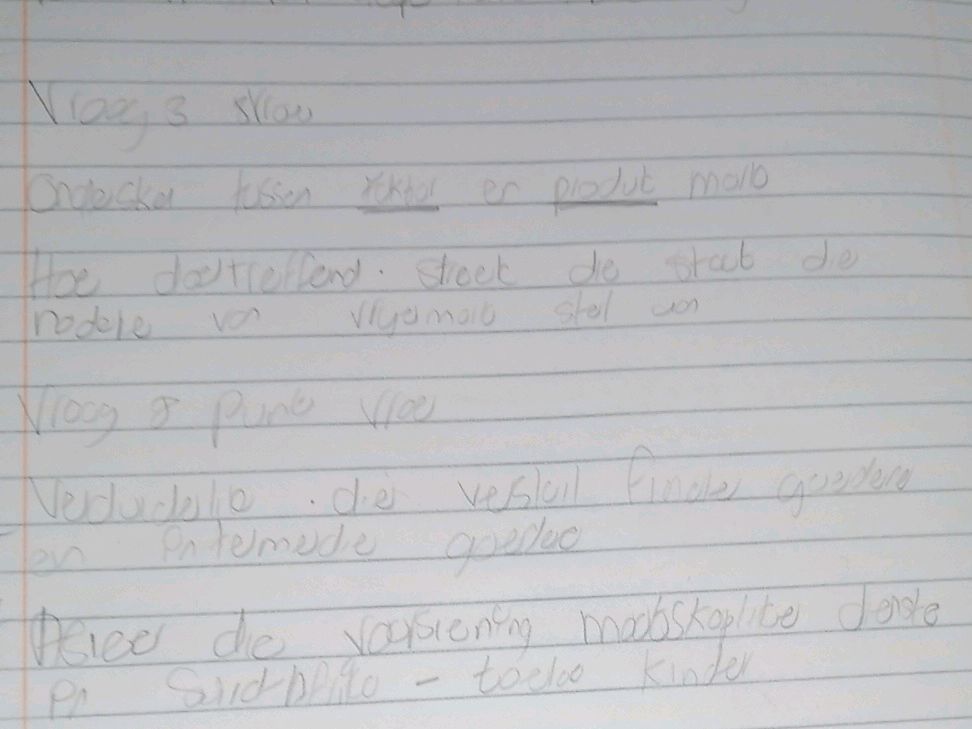 Vraag 3 skrou
Onderskei tussen faktor en produt mark
Hoe doeltreffend. street die staat die
nodele von vryemark stel aan
Vraag 8 punt
Verduidelik . die verskil finale goedere
en intermedie goedere
die voorsiening maatskaplike denste
in Suid-Afrika - toelae kinder